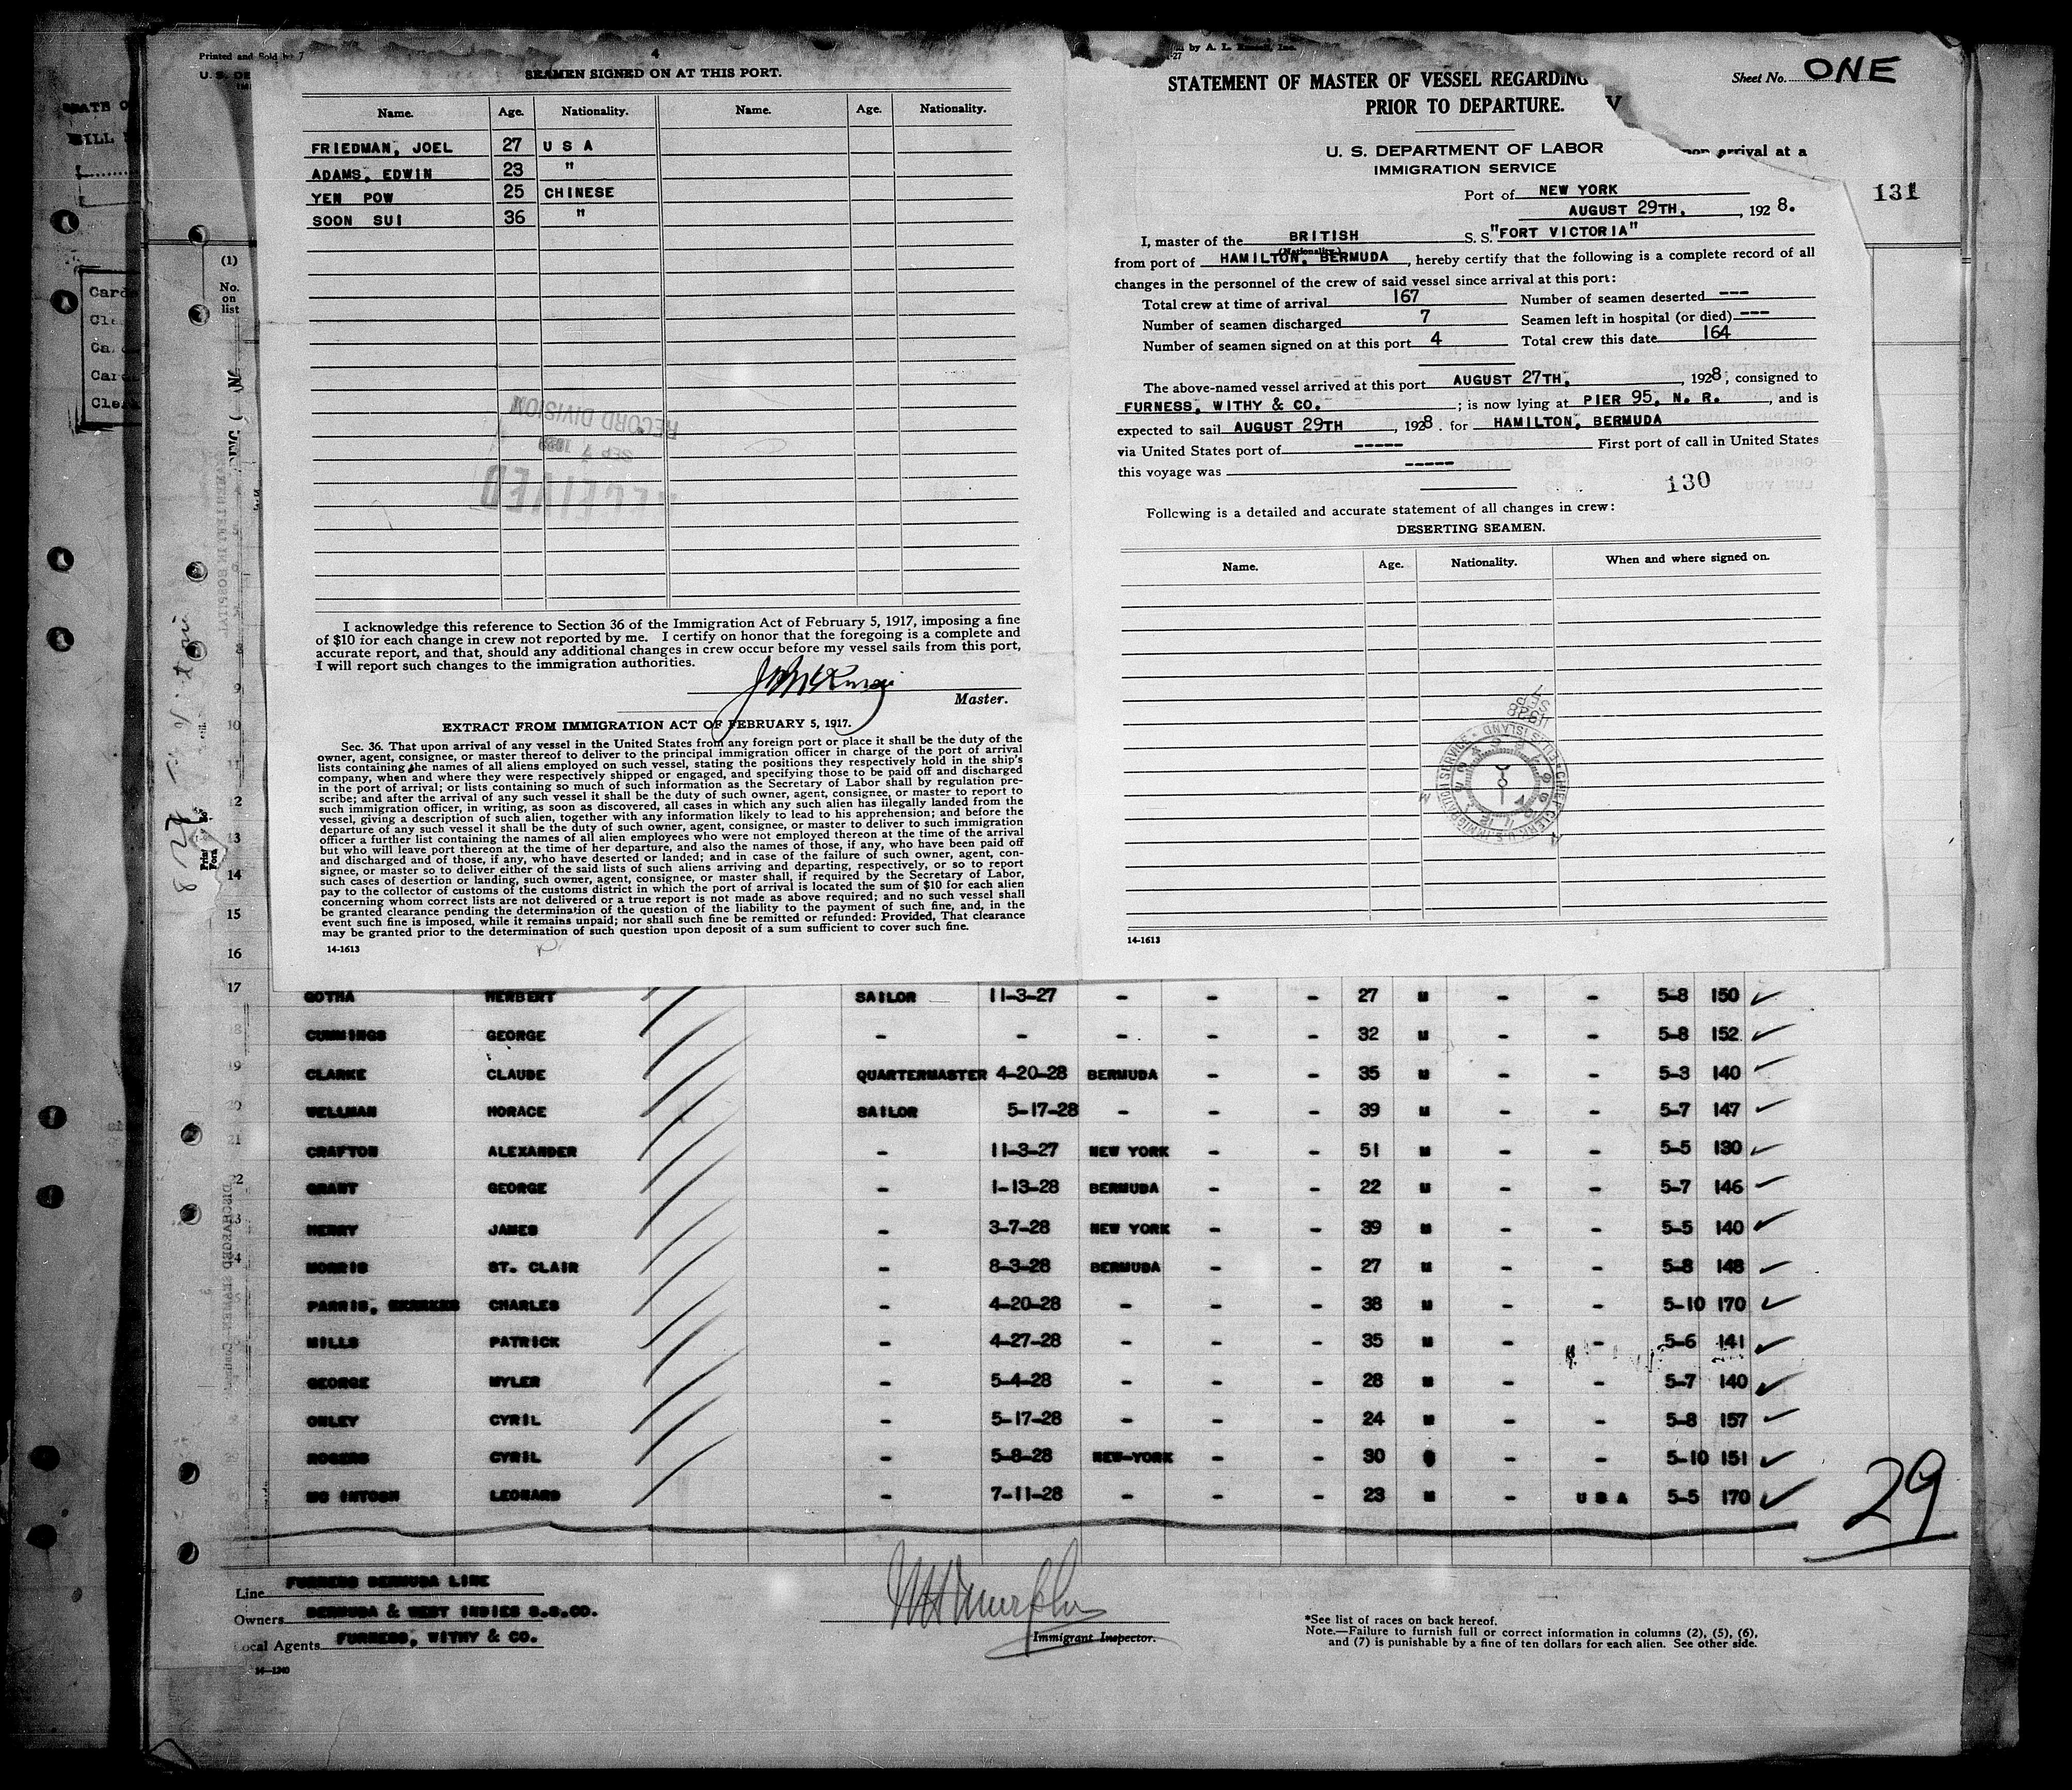 Printed and Sold by
4
SEAMEN SIGNED ON AT THIS PORT.
Name. Age. Nationality. Name. Age. Nationality.
FRIEDMAN, JOEL 27 U S A
ADAMS, EDWIN 23 "
YEN POW 25 CHINESE
SOON SUI 36 "
RECEIVED
SEP 7 1928
RECORD DIVISION
I acknowledge this reference to Section 36 of the Immigration Act of February 5, 1917, imposing a fine
of $10 for each change in crew not reported by me. I certify on honor that the foregoing is a complete and
accurate report, and that, should any additional changes in crew occur before my vessel sails from this port,
I will report such changes to the immigration authorities.
Master.
EXTRACT FROM IMMIGRATION ACT OF FEBRUARY 5, 1917.
Sec. 36. That upon arrival of any vessel in the United States from any foreign port or place it shall be the duty of the
owner, agent, consignee, or master thereof to deliver to the principal immigration officer in charge of the port of arrival
lists containing the names of all aliens employed on such vessel, stating the positions they respectively hold in the ship's
company, when and where they were respectively shipped or engaged, and specifying those to be paid off and discharged
in the port of arrival; or lists containing so much of such information as the Secretary of Labor shall by regulation pre-
scribe; and after the arrival of any such vessel it shall be the duty of such owner, agent, consignee, or master to report to
such immigration officer, in writing, as soon as discovered, all cases in which any such alien has illegally landed from the
vessel, giving a description of such alien, together with any information likely to lead to his apprehension; and before the
departure of any such vessel it shall be the duty of such owner, agent, consignee, or master to deliver to such immigration
officer a further list containing the names of all alien employees who were not employed thereon at the time of the arrival
but who will leave port thereon at the time of her departure, and also the names of those, if any, who have been paid off
and discharged and of those, if any, who have deserted or landed; and in case of the failure of such owner, agent, con-
signee, or master so to deliver either of the said lists of such aliens arriving and departing, respectively, or so to report
such cases of desertion or landing, such owner, agent, consignee, or master shall, if required by the Secretary of Labor,
pay to the collector of customs of the customs district in which the port of arrival is located the sum of $10 for each alien
concerning whom correct lists are not delivered or a true report is not made as above required; and no such vessel shall
be granted clearance pending the determination of the question of the liability to the payment of such fine, and, in the
event such fine is imposed, while it remains unpaid; nor shall such fine be remitted or refunded: Provided, That clearance
may be granted prior to the determination of such question upon deposit of a sum sufficient to cover such fine.
14-1613
by A. L. Russell, Inc.
STATEMENT OF MASTER OF VESSEL REGARDING
PRIOR TO DEPARTURE.
Sheet No. ONE
U. S. DEPARTMENT OF LABOR
IMMIGRATION SERVICE
arrival at a
131
Port of NEW YORK
AUGUST 29TH, , 1928.
I, master of the BRITISH S. S. "FORT VICTORIA"
(Nationality.)
from port of HAMILTON, BERMUDA, hereby certify that the following is a complete record of all
changes in the personnel of the crew of said vessel since arrival at this port:
Total crew at time of arrival 167 Number of seamen deserted ---
Number of seamen discharged 7 Seamen left in hospital (or died) ---
Number of seamen signed on at this port 4 Total crew this date 164
The above-named vessel arrived at this port AUGUST 27TH, , 1928, consigned to
FURNESS, WITHY & CO. ; is now lying at PIER 95, N. R. , and is
expected to sail AUGUST 29TH , 1928. for HAMILTON, BERMUDA
via United States port of ----- First port of call in United States
this voyage was -----
130
Following is a detailed and accurate statement of all changes in crew:
DESERTING SEAMEN.
Name. Age. Nationality. When and where signed on.
14-1613
(1)
No.
on
list
9
10
11
12
13
14
15
16
17 GOTHA HERBERT SAILOR 11-3-27 - - - 27 M - - 5-8 150
18 CUMMINGS GEORGE - - - - - 32 M - - 5-8 152
19 CLARKE CLAUDE QUARTERMASTER 4-20-28 BERMUDA - - 35 M - - 5-3 140
20 WELLMAN HORACE SAILOR 5-17-28 - - - 39 M - - 5-7 147
21 CRAFTON ALEXANDER - 11-3-27 NEW YORK - - 51 M - - 5-5 130
22 GRANT GEORGE - 1-13-28 BERMUDA - - 22 M - - 5-7 146
23 HENRY JAMES - 3-7-28 NEW YORK - - 39 M - - 5-5 140
24 MORRIS ST. CLAIR - 8-3-28 BERMUDA - - 27 M - - 5-8 148
PARRIS, CHARLES - 4-20-28 - - - 38 M - - 5-10 170
MILLS PATRICK - 4-27-28 - - - 35 M - - 5-6 141
GEORGE MYLER - 5-4-28 - - - 28 M - - 5-7 140
ONLEY CYRIL - 5-17-28 - - - 24 M - - 5-8 157
ROGERS CYRIL - 5-8-28 NEW-YORK - - 30 - - 5-10 151
MC INTOSH LEONARD - 7-11-28 - - - 23 M - U S A 5-5 170
29
Line FURNESS BERMUDA LINE
Owners BERMUDA & WEST INDIES S.S.CO.
Local Agents FURNESS, WITHY & CO.
14-1240
Immigrant Inspector.
*See list of races on back hereof.
Note.—Failure to furnish full or correct information in columns (2), (5), (6),
and (7) is punishable by a fine of ten dollars for each alien. See other side.